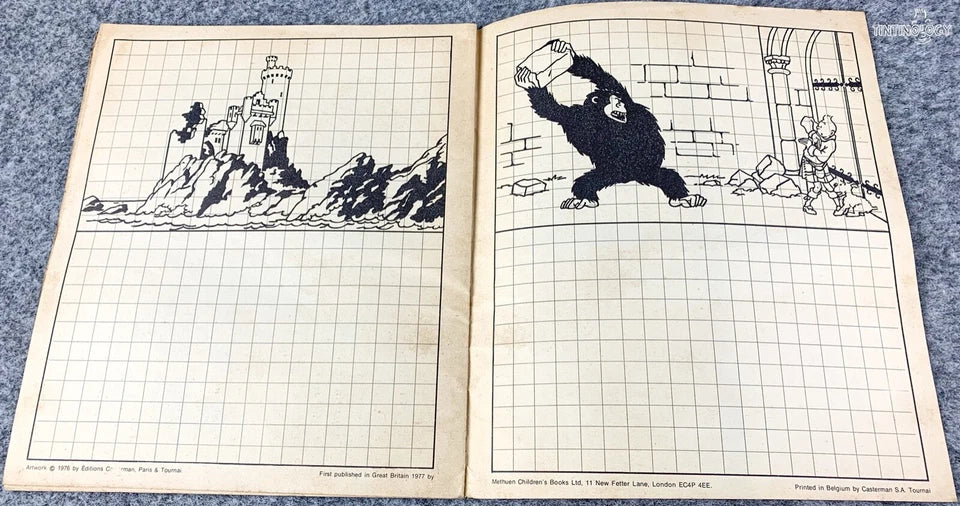 TINTINOLOGY
Artwork © 1976 by Éditions Casterman, Paris & Tournai
First published in Great Britain 1977 by
Methuen Children's Books Ltd, 11 New Fetter Lane, London EC4P 4EE.
Printed in Belgium by Casterman S.A. Tournai